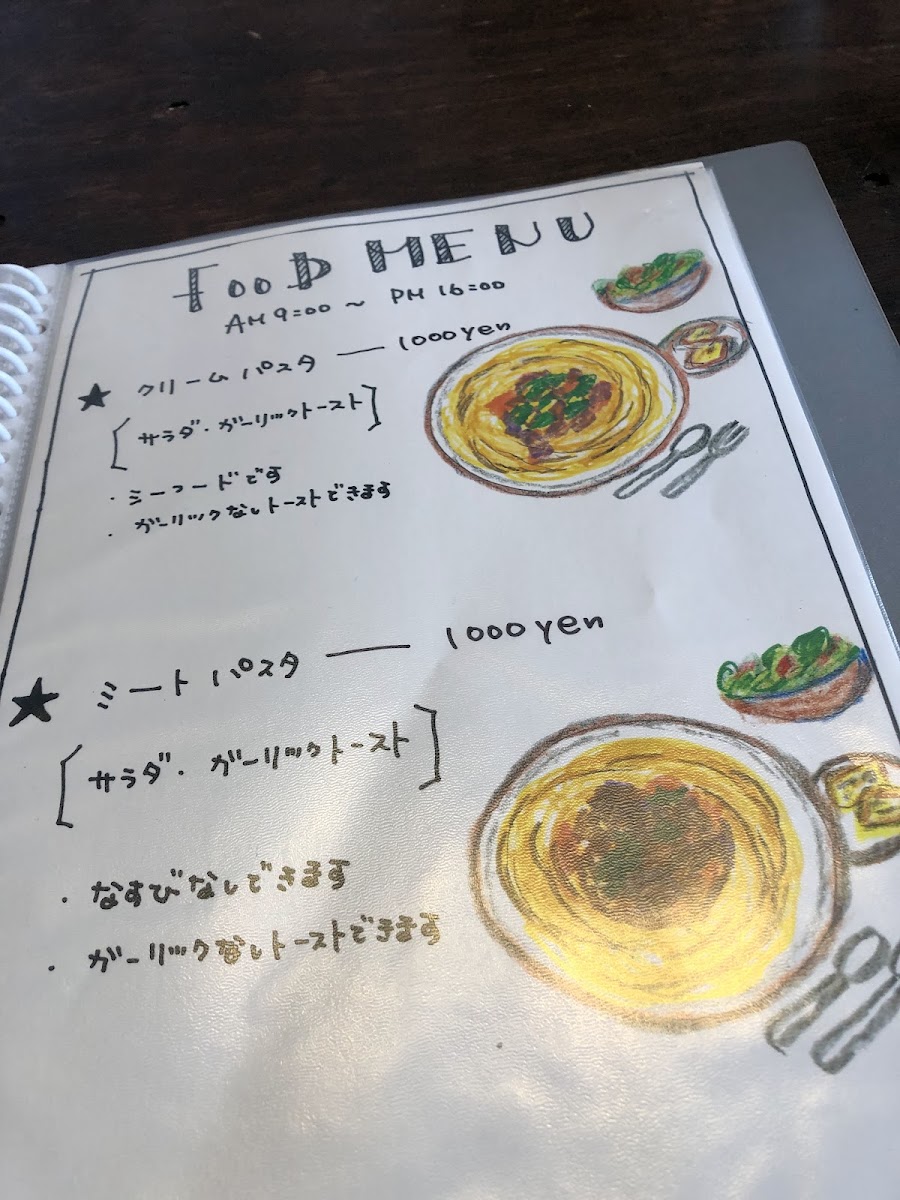 FOOD MENU
AM 9:00 ~ PM 16:00
★ クリームパスタ — 1000yen
[サラダ・ガーリックトースト]
・シーフードです
・ガーリックなしトーストできます
★ ミートパスタ — 1000yen
[サラダ・ガーリックトースト]
・なすびなしできます
・ガーリックなしトーストできます